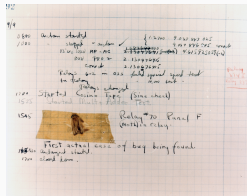 9/9
0800 antan started
1000 " stopped - antan ✓
13" uc (032) MP-MC
(033) PRO 2 2.130476415
correct 2.130676415
Relays 6-2 in 033 failed special speed test
in relay
Relays changed
1100 Started Cosine Tape (Sine check)
1525 Started Multi Adder Test.
1545 Relay #70 Panel F
(moth) in relay.
First actual case of bug being found.
antangent started.
1700 closed down.